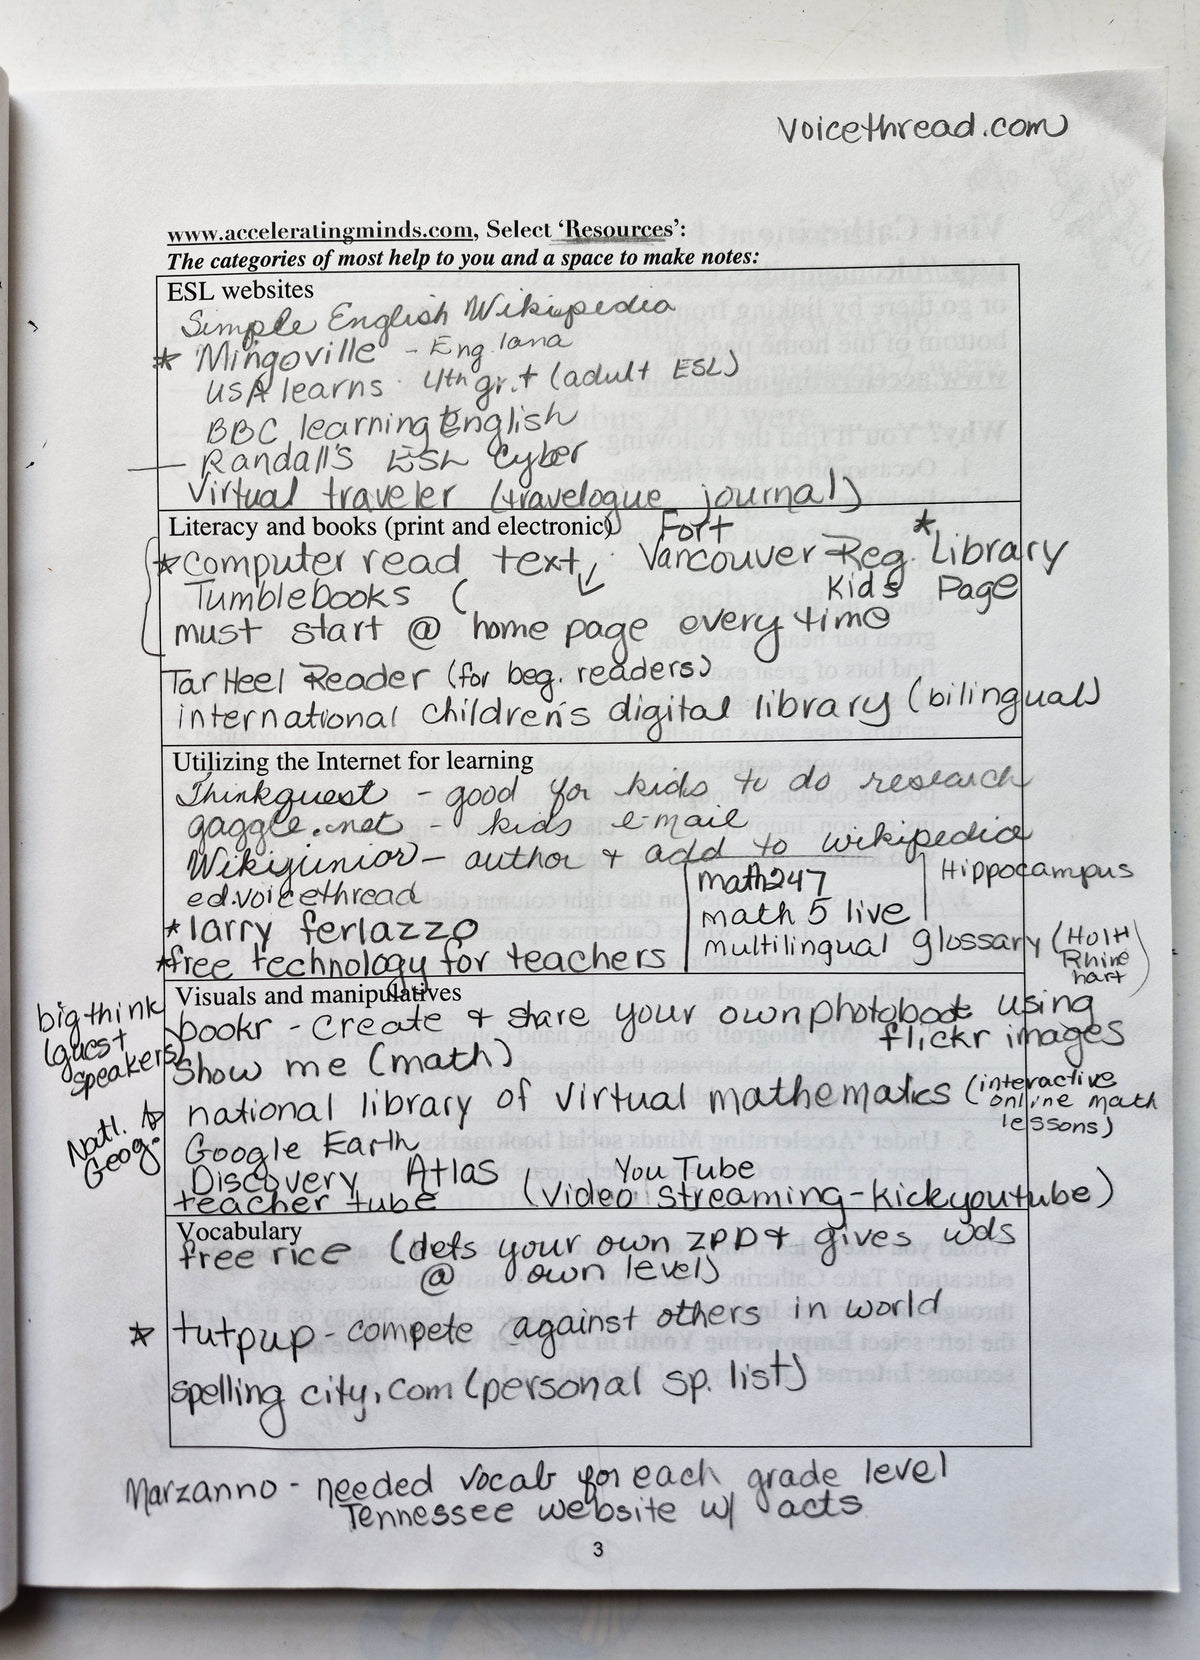 voicethread.com
www.acceleratingminds.com, Select ‘Resources’:
The categories of most help to you and a space to make notes:
ESL websites
Simple English Wikipedia
* Mingoville - Eng. lang
USA learns - 4th gr.+ (adult ESL)
BBC learning English
— Randall's ESL Cyber
Virtual traveler (travelogue journal)
Literacy and books (print and electronic)
Fort
* computer read text, Vancouver Reg. * Library
Tumblebooks ( Kids Page
must start @ home page every time
Tar Heel Reader (for beg. readers)
international children's digital library (bilingual)
Utilizing the Internet for learning
Thinkquest - good for kids to do research
gaggle.net - kids e-mail
Wikijunior - author + add to wikipedia
ed.voicethread
* larry ferlazzo
* free technology for teachers
math247
math 5 live
multilingual glossary (Holt
Rhine
hart)
Hippocampus
Visuals and manipulatives
big think
(guest
speakers)
bookr - create + share your own photobook using
flickr images
Show me (math)
national library of virtual mathematics (interactive
online math
lessons)
Natl.
Geog.
Google Earth
Discovery Atlas
teacher tube
You Tube
(video streaming - kickyoutube)
Vocabulary
free rice (dets your own ZPD + gives wds
@ own level)
* tutpup - compete against others in world
spelling city.com (personal sp. list)
Marzanno - needed vocab for each grade level
Tennessee website w/ acts
3